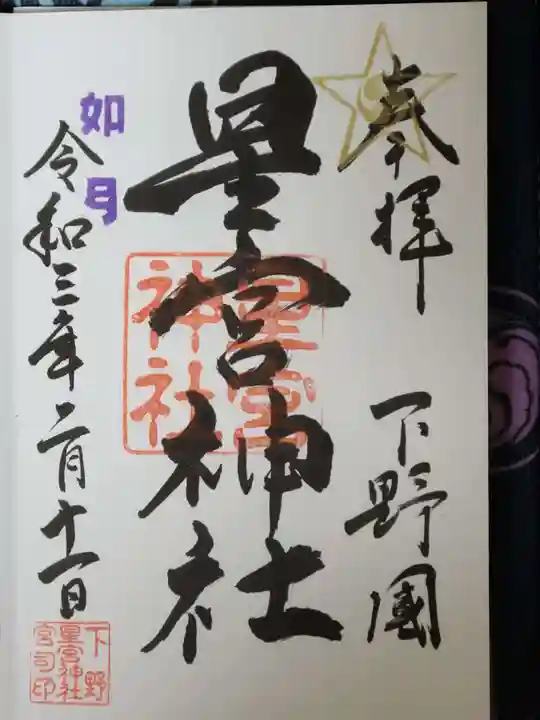 奉拝 下野國
星宮神社
星宮
神社
如月
令和三年二月十一日
下野
星宮神社
宮司印